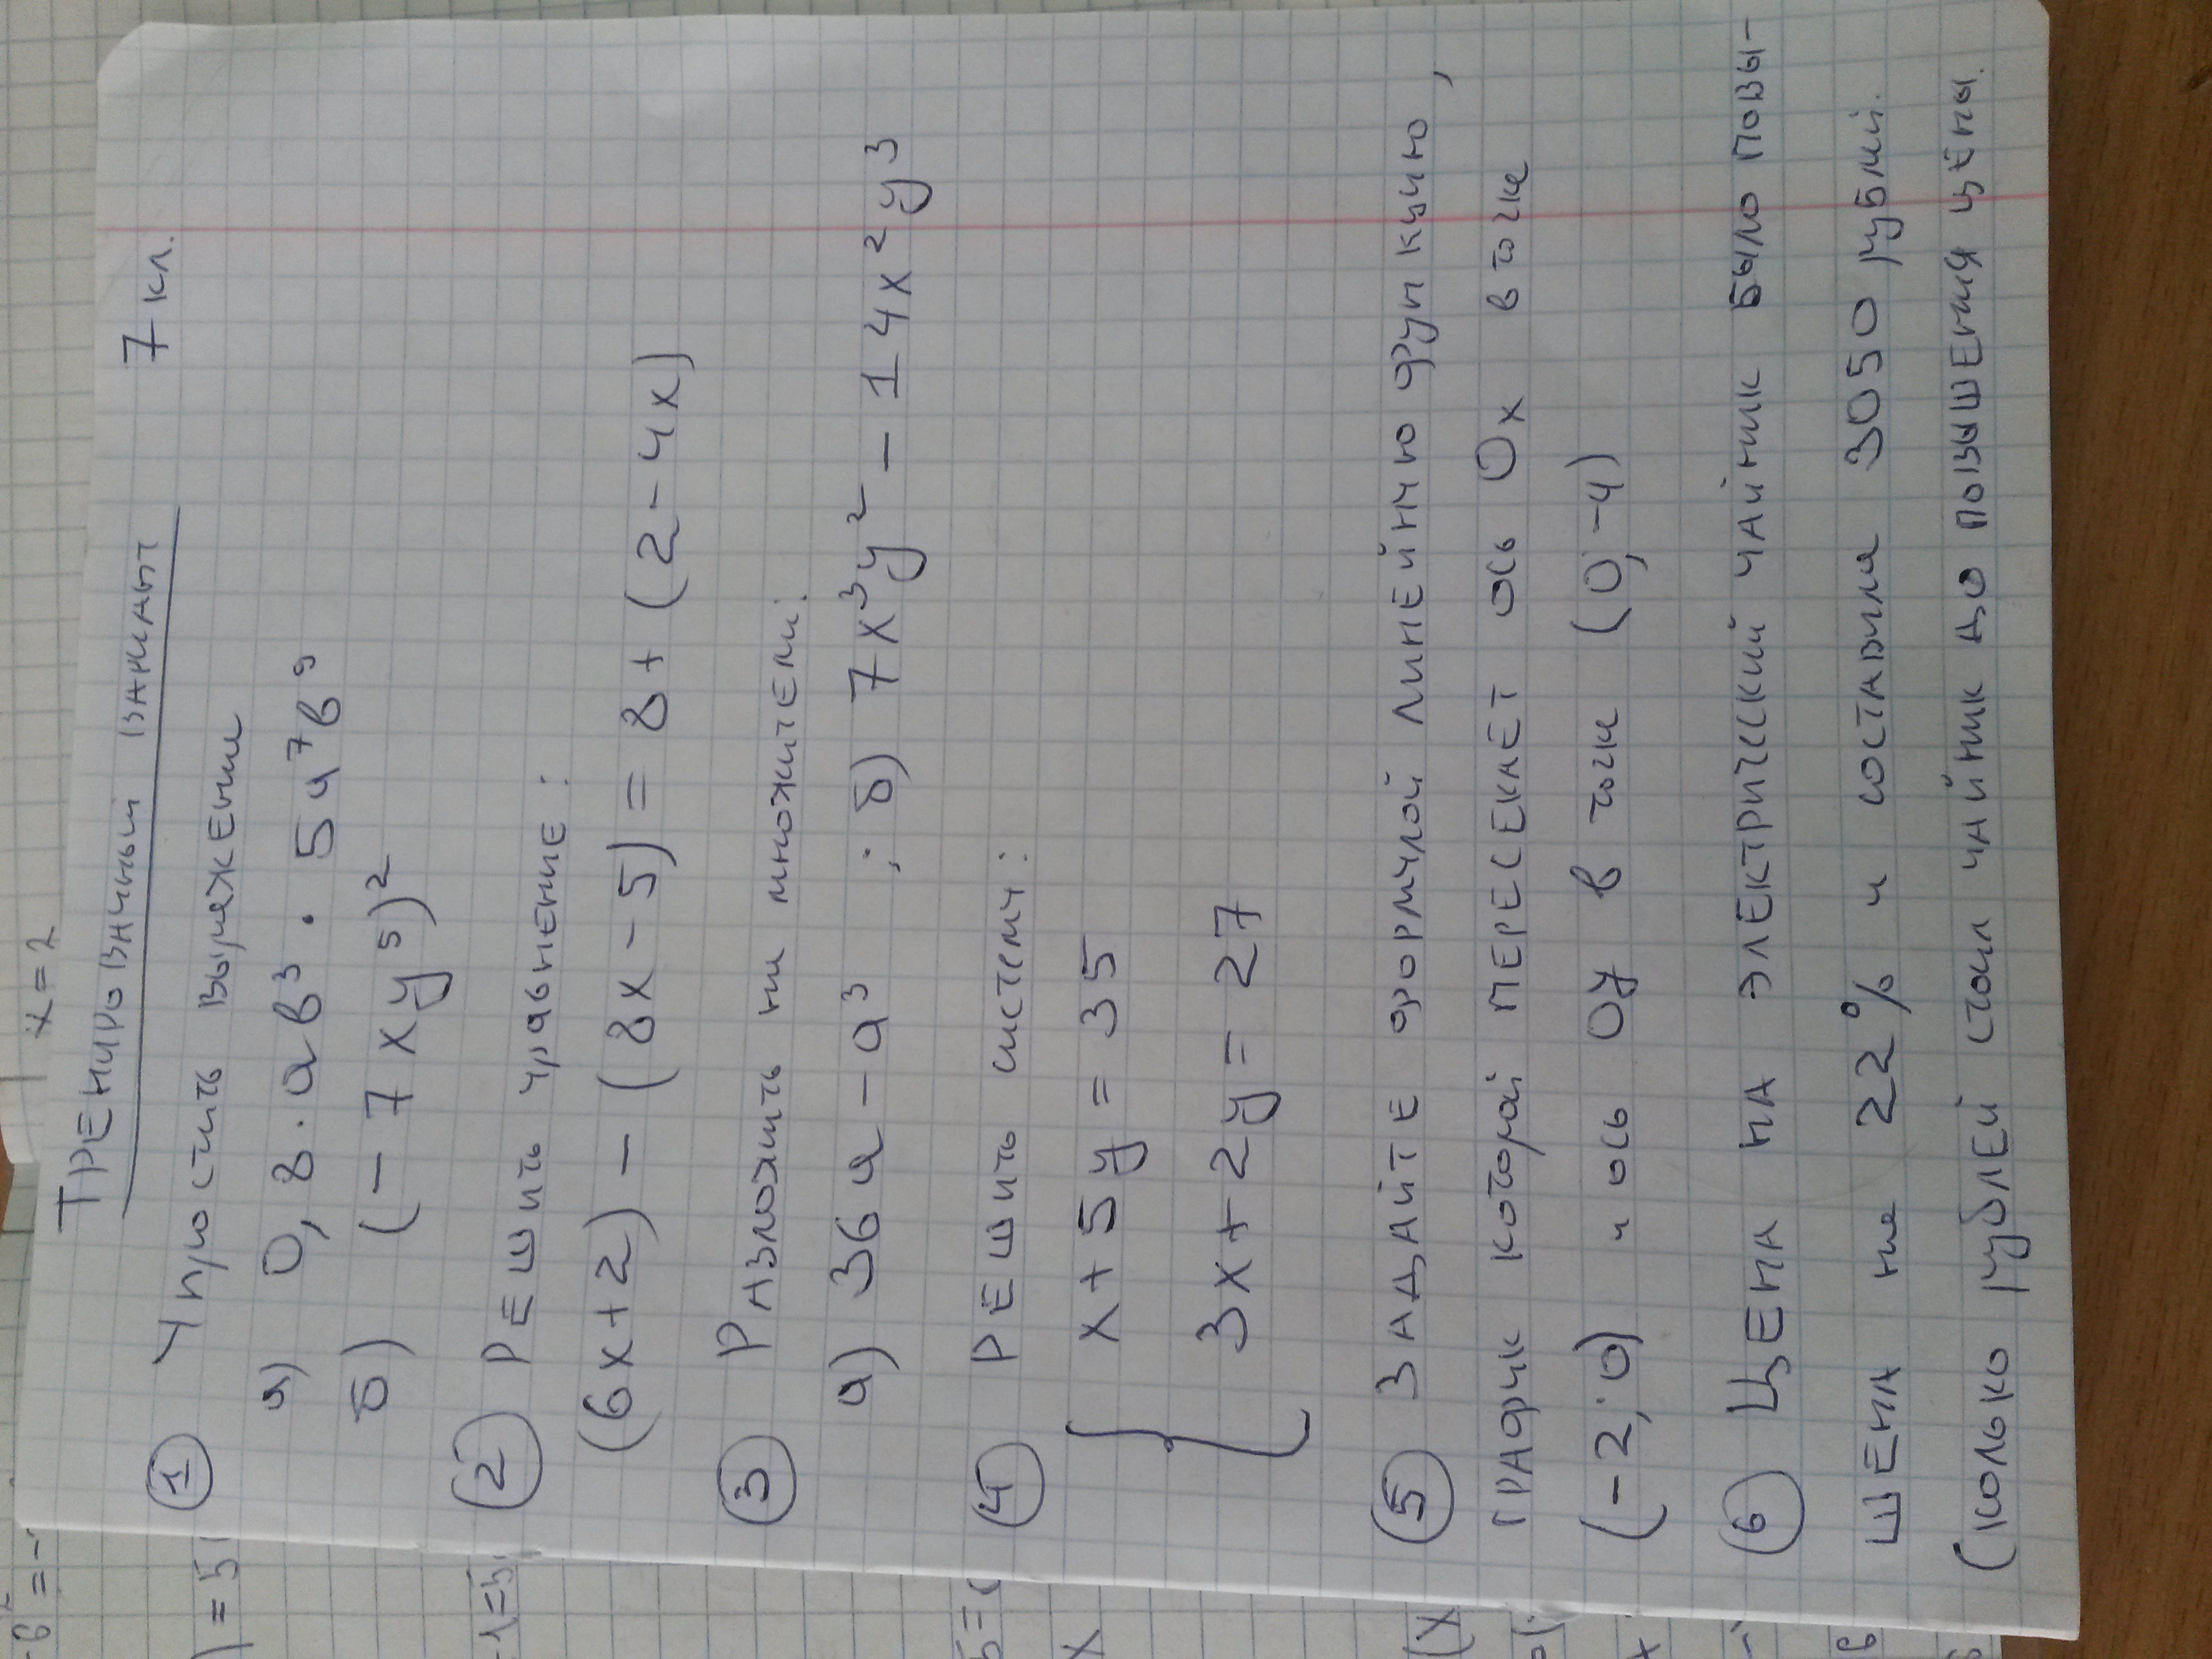 x=2
ТРЕНИРОВОЧНЫЙ ВАРИАНТ 7 кл.
① Упростить выражение
а) 0,8·ab³·5a⁷b⁹
б) (-7xy⁵)²
② РЕШИТЬ уравнение:
(6x+2)-(8x-5)=8+(2-4x)
③ Разложить на множители:
а) 36a-a³ ; б) 7x³y²-14x²y³
④ РЕШИТЬ систему:
{ x+5y=35
3x+2y=27
⑤ ЗАДАЙТЕ формулой линейную функцию,
график которой пересекает ось Ox в точке
(-2;0) и ось Oy в точке (0;-4)
⑥ ЦЕНА на электрический чайник было повы-
шена на 22% и составила 3050 рублей.
Сколько рублей стоил чайник до повышения цены.